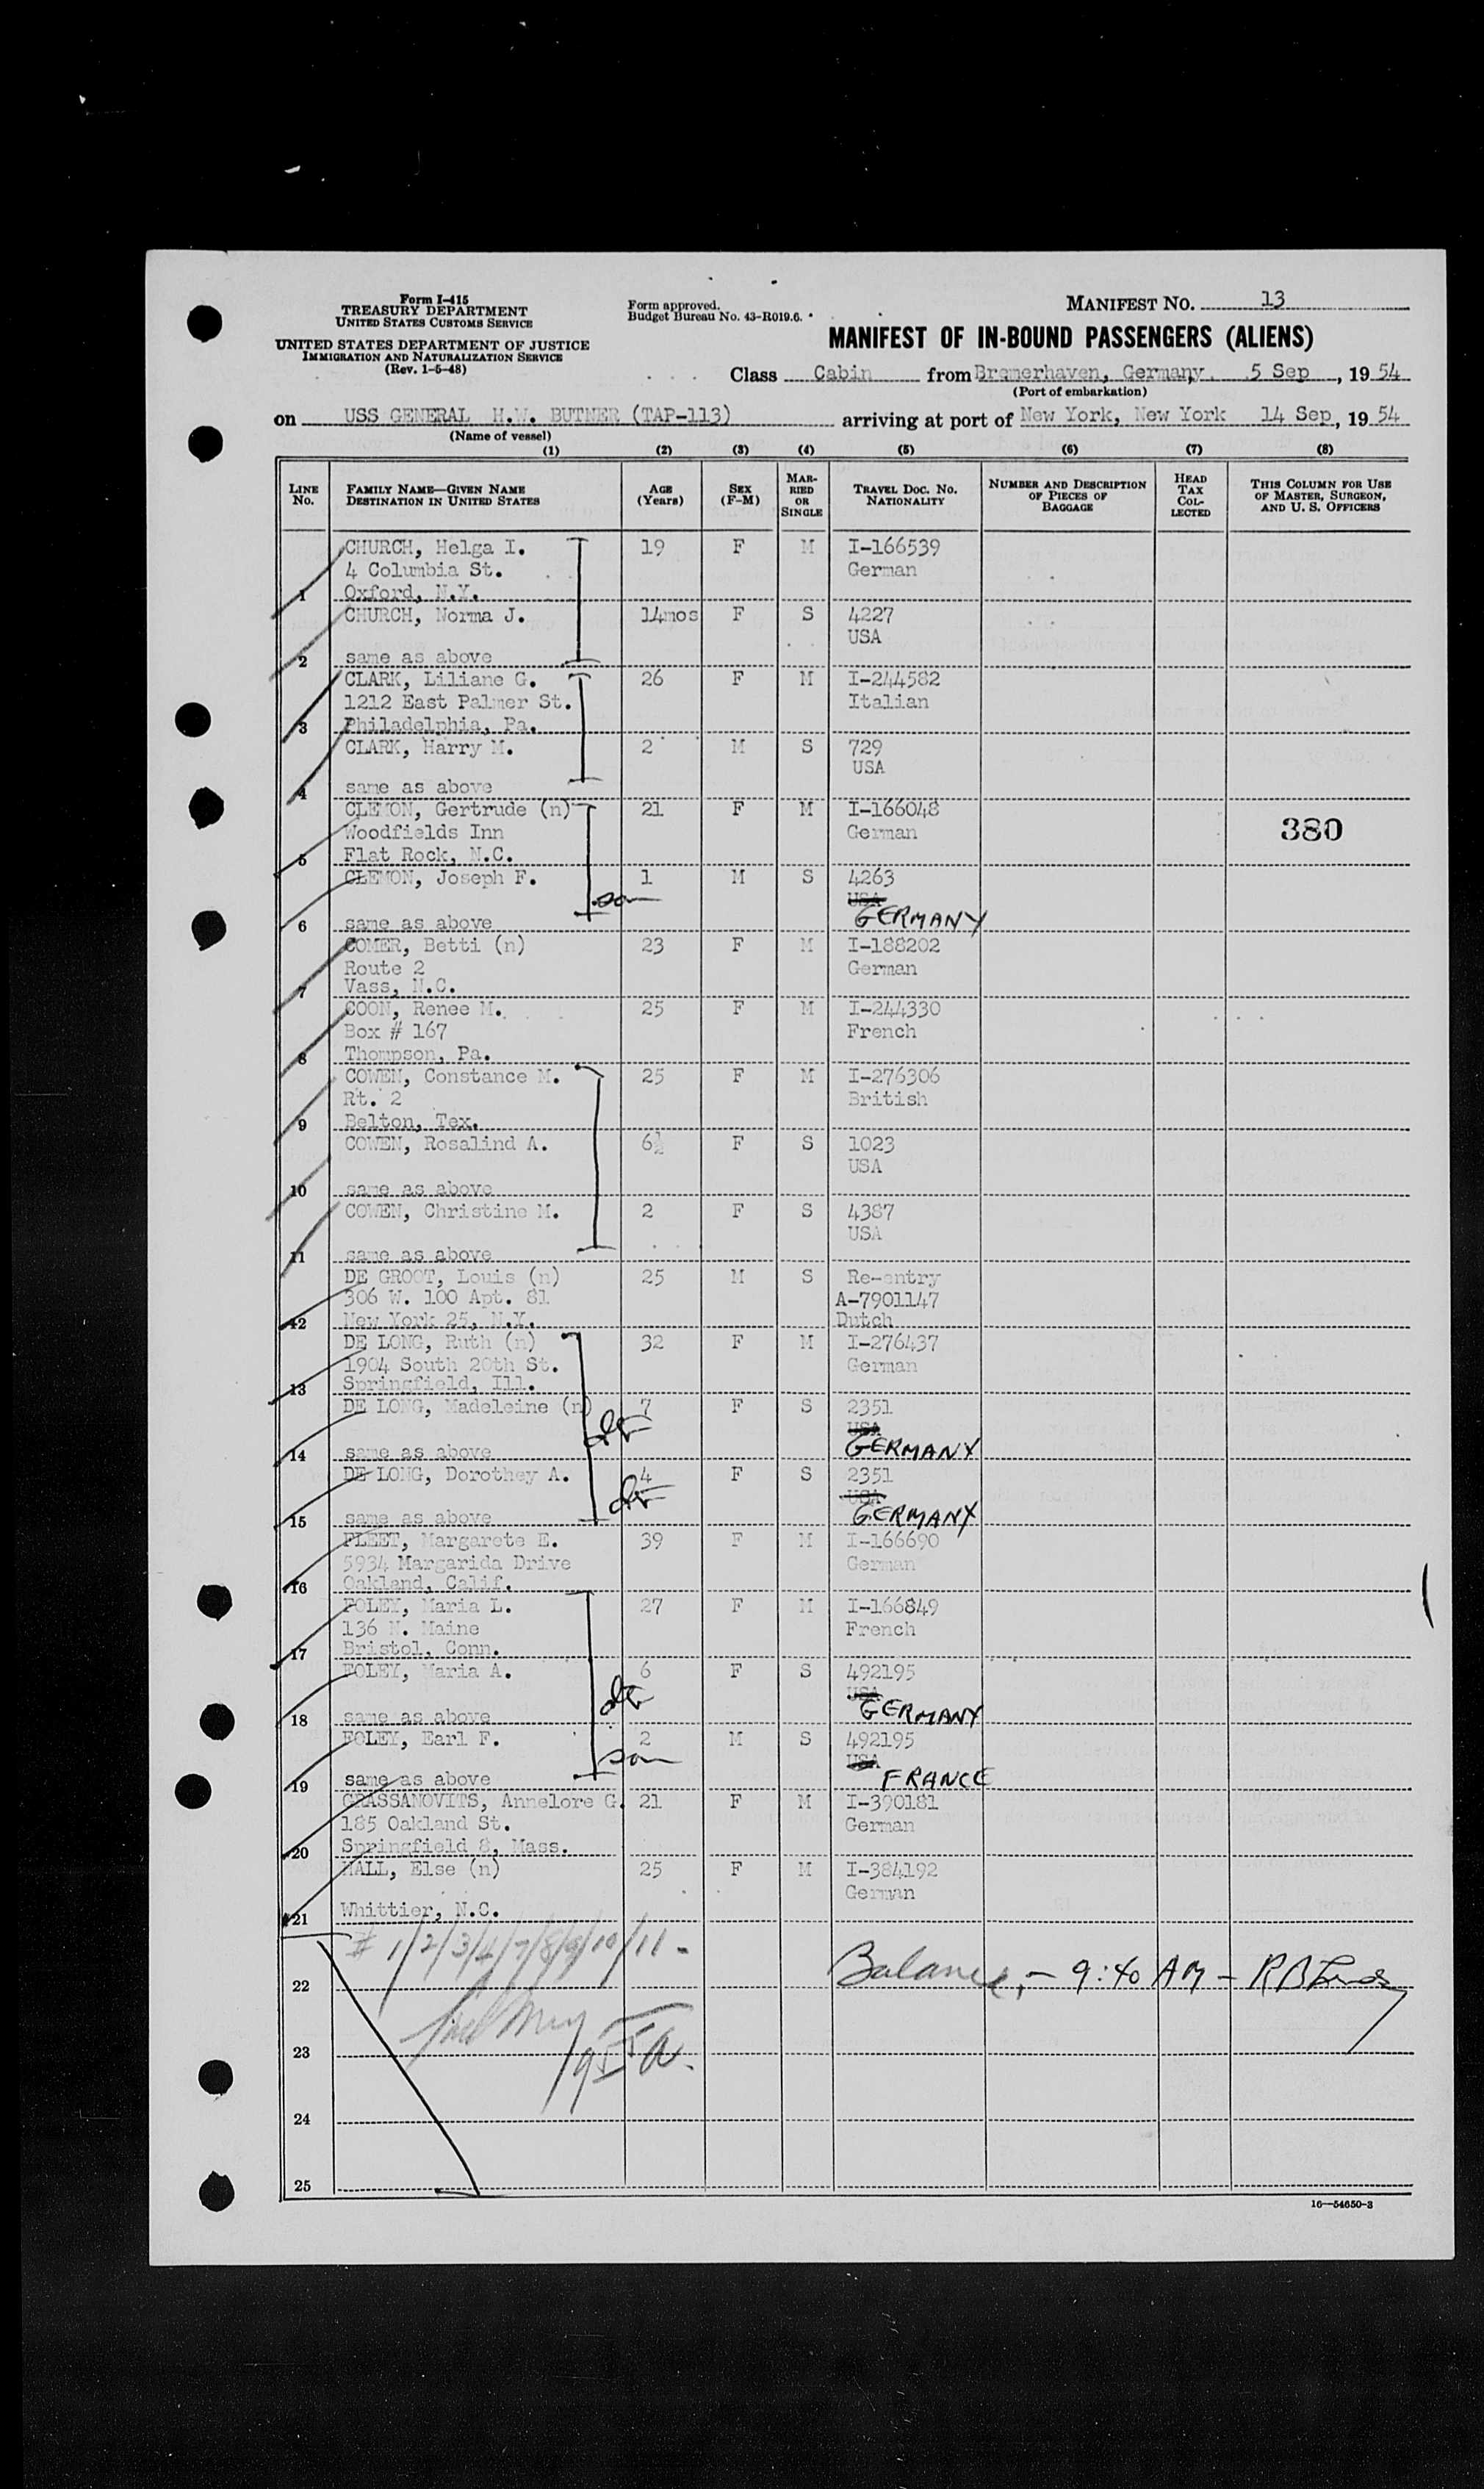 Form I-415
TREASURY DEPARTMENT
UNITED STATES CUSTOMS SERVICE
UNITED STATES DEPARTMENT OF JUSTICE
IMMIGRATION AND NATURALIZATION SERVICE
(Rev. 1-5-48)
Form approved.
Budget Bureau No. 43-R019.6.
MANIFEST NO. 13
MANIFEST OF IN-BOUND PASSENGERS (ALIENS)
Class Cabin from Bremerhaven, Germany, 5 Sep, 1954
(Port of embarkation)
on USS GENERAL H.W. BUTNER (TAP-113) arriving at port of New York, New York 14 Sep, 1954
(Name of vessel)
(1) (2) (3) (4) (5) (6) (7) (8)
LINE No. FAMILY NAME—GIVEN NAME DESTINATION IN UNITED STATES AGE (Years) SEX (F-M) MARRIED OR SINGLE TRAVEL DOC. NO. NATIONALITY NUMBER AND DESCRIPTION OF PIECES OF BAGGAGE HEAD TAX COLLECTED THIS COLUMN FOR USE OF MASTER, SURGEON, AND U. S. OFFICERS
CHURCH, Helga I. 19 F M I-166539
4 Columbia St. German
1 Oxford, N.Y.
CHURCH, Norma J. 14mos F S 4227
USA
2 same as above
CLARK, Liliane G. 26 F M I-244582
1212 East Palmer St. Italian
3 Philadelphia, Pa.
CLARK, Harry M. 2 M S 729
USA
4 same as above
CLEMON, Gertrude (n) 21 F M I-166048
Woodfields Inn German 380
5 Flat Rock, N.C.
CLEMON, Joseph F. 1 M S 4263
son USA
6 same as above GERMANY
COMER, Betti (n) 23 F M I-188202
Route 2 German
7 Vass, N.C.
COON, Renee M. 25 F M I-244330
Box # 167 French
8 Thompson, Pa.
COWEN, Constance M. 25 F M I-276306
Rt. 2 British
9 Belton, Tex.
COWEN, Rosalind A. 6½ F S 1023
USA
10 same as above
COWEN, Christine M. 2 F S 4387
USA
11 same as above
DE GROOT, Louis (n) 25 M S Re-entry
306 W. 100 Apt. 81 A-7901147
12 New York 25, N.Y. Dutch
DE LONG, Ruth (n) 32 F M I-276437
1904 South 20th St. German
13 Springfield, Ill.
DE LONG, Madeleine (n) 7 F S 2351
dtr USA
14 same as above GERMANY
DE LONG, Dorothey A. 4 F S 2351
dtr USA
15 same as above GERMANY
FLEET, Margarete E. 39 F M I-166690
5934 Margarida Drive German
16 Oakland, Calif.
FOLEY, Maria L. 27 F M I-166849
136 N. Maine French
17 Bristol, Conn.
FOLEY, Maria A. 6 F S 492195
dtr USA
18 same as above GERMANY
FOLEY, Earl F. 2 M S 492195
son USA
19 same as above FRANCE
GRASSANOVITS, Annelore G. 21 F M I-390181
185 Oakland St. German
20 Springfield 8, Mass.
HALL, Else (n) 25 F M I-384192
German
21 Whittier, N.C.
# 1/2/3/4/7/8/9/10/11 -
22 Balance, - 9:40 AM -
23
24
25
16—54650-3